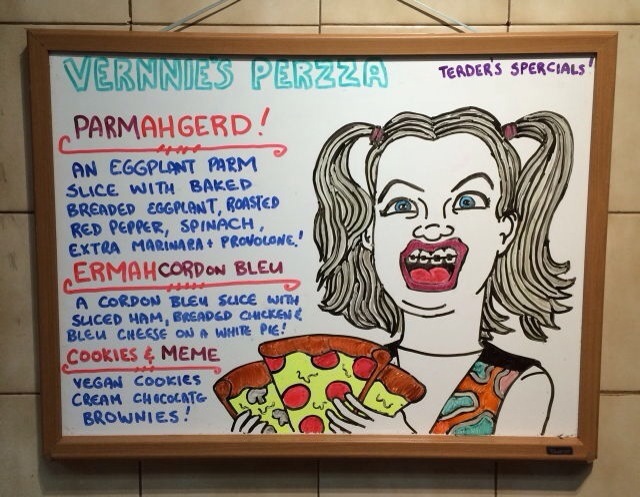 VERNNIE'S PERZZA
TERDER'S SPERCIALS!
PARMAHGERD!
AN EGGPLANT PARM
SLICE WITH BAKED
BREADED EGGPLANT, ROASTED
RED PEPPER, SPINACH,
EXTRA MARINARA + PROVOLONE!
ERMAHCORDON BLEU
A CORDON BLEU SLICE WITH
SLICED HAM, BREADED CHICKEN &
BLEU CHEESE ON A WHITE PIE!
COOKIES & MEME
VEGAN COOKIES
CREAM CHOCOLATE
BROWNIES!